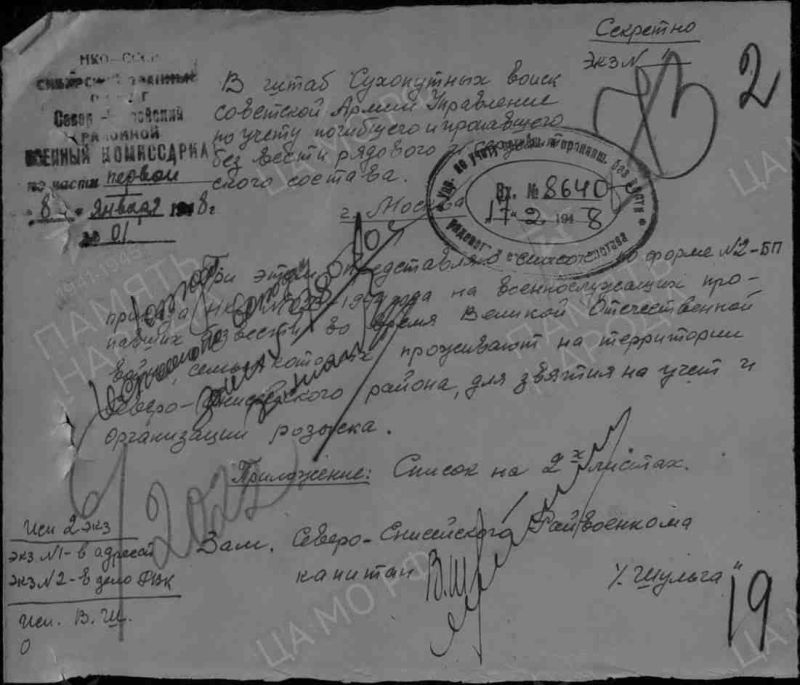 Секретно
Экз N 1
2
НКО-СССР
СИБИРСКИЙ ВОЕННЫЙ
ОКРУГ
Северо-Енисейский
РАЙОННОЙ
ВОЕННЫЙ КОМИССАРИАТ
по части первой
"8" января 1948 г.
01
В штаб Сухопутных войск
советской Армии Управление
по учету погибшего и пропавшего
без вести рядового и сержант-
ского состава.
г. Москва
Упр. по учету погибш. и пропавш. без вести
рядового и сержант. состава
Вх. № 8640
17 2 1948
При этом представляю список по форме N2-БП
приказа НКО 1944 года на военнослужащих про-
павших без вести во время Великой Отечественной
войны, семьи которых проживают на территории
Северо-Енисейского района, для взятия на учет и
организации розыска.
Приложение: Список на 2х листах.
2022
Исп 2 экз
экз N1- в адресат
экз N2- в дело РВК
Исп. В. Ш.
Зам. Северо-Енисейского Райвоенкома
капитан В.Ш.
/Шульга"
19
ПАМЯТЬ
НАРОДА
1941-1945
ЦА МО РФ